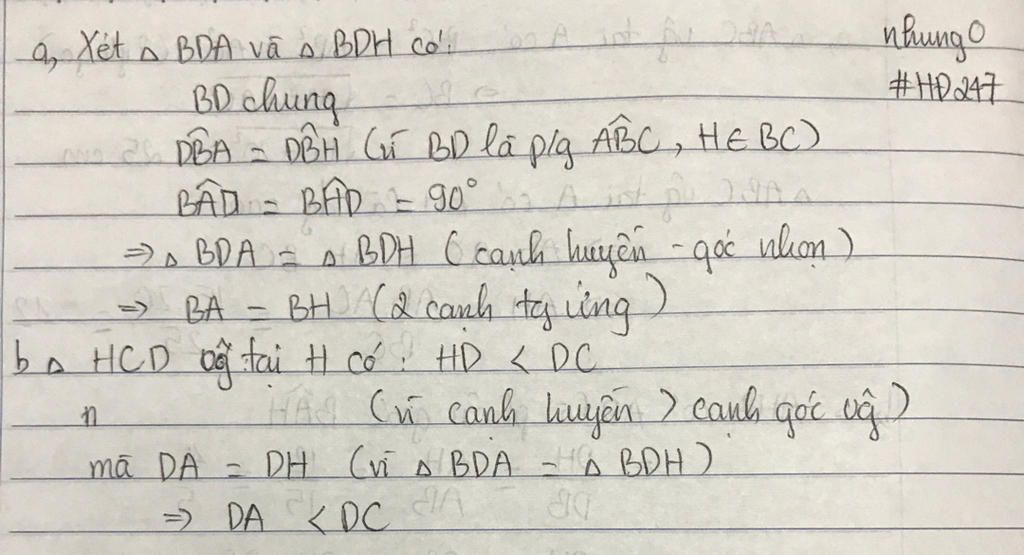 a, Xét △ BDA và △ BDH có:
nhung0
BD chung
#HD247
DB̂A = DB̂H (vì BD là p/g AB̂C, H ∈ BC)
BÂD = BĤD = 90°
⇒ △ BDA = △ BDH (cạnh huyền - góc nhọn)
⇒ BA = BH (2 cạnh tg ứng)
b △ HCD vg tại H có: HD < DC
n (vì cạnh huyền > cạnh góc vg)
mà DA = DH (vì △ BDA = △ BDH)
⇒ DA < DC